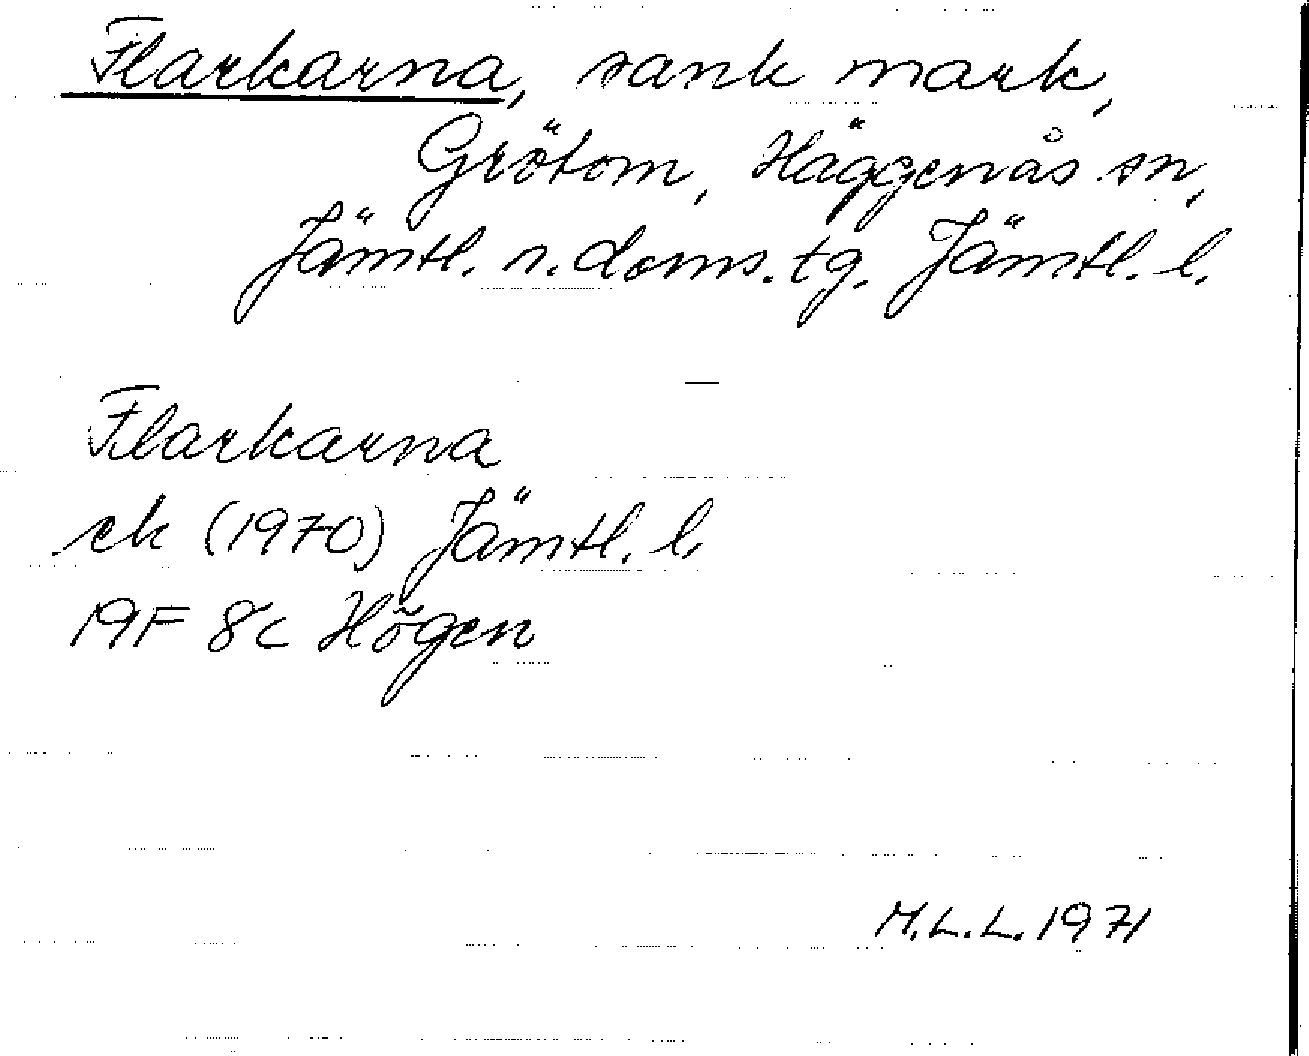 Flarkarna, sank mark,
Grötom, Häggenås sn,
Jämtl. n. doms. tg. Jämtl. l.
—
Flarkarna
ek (1970) Jämtl. l.
19F 8c Högen
M.L.L. 1971